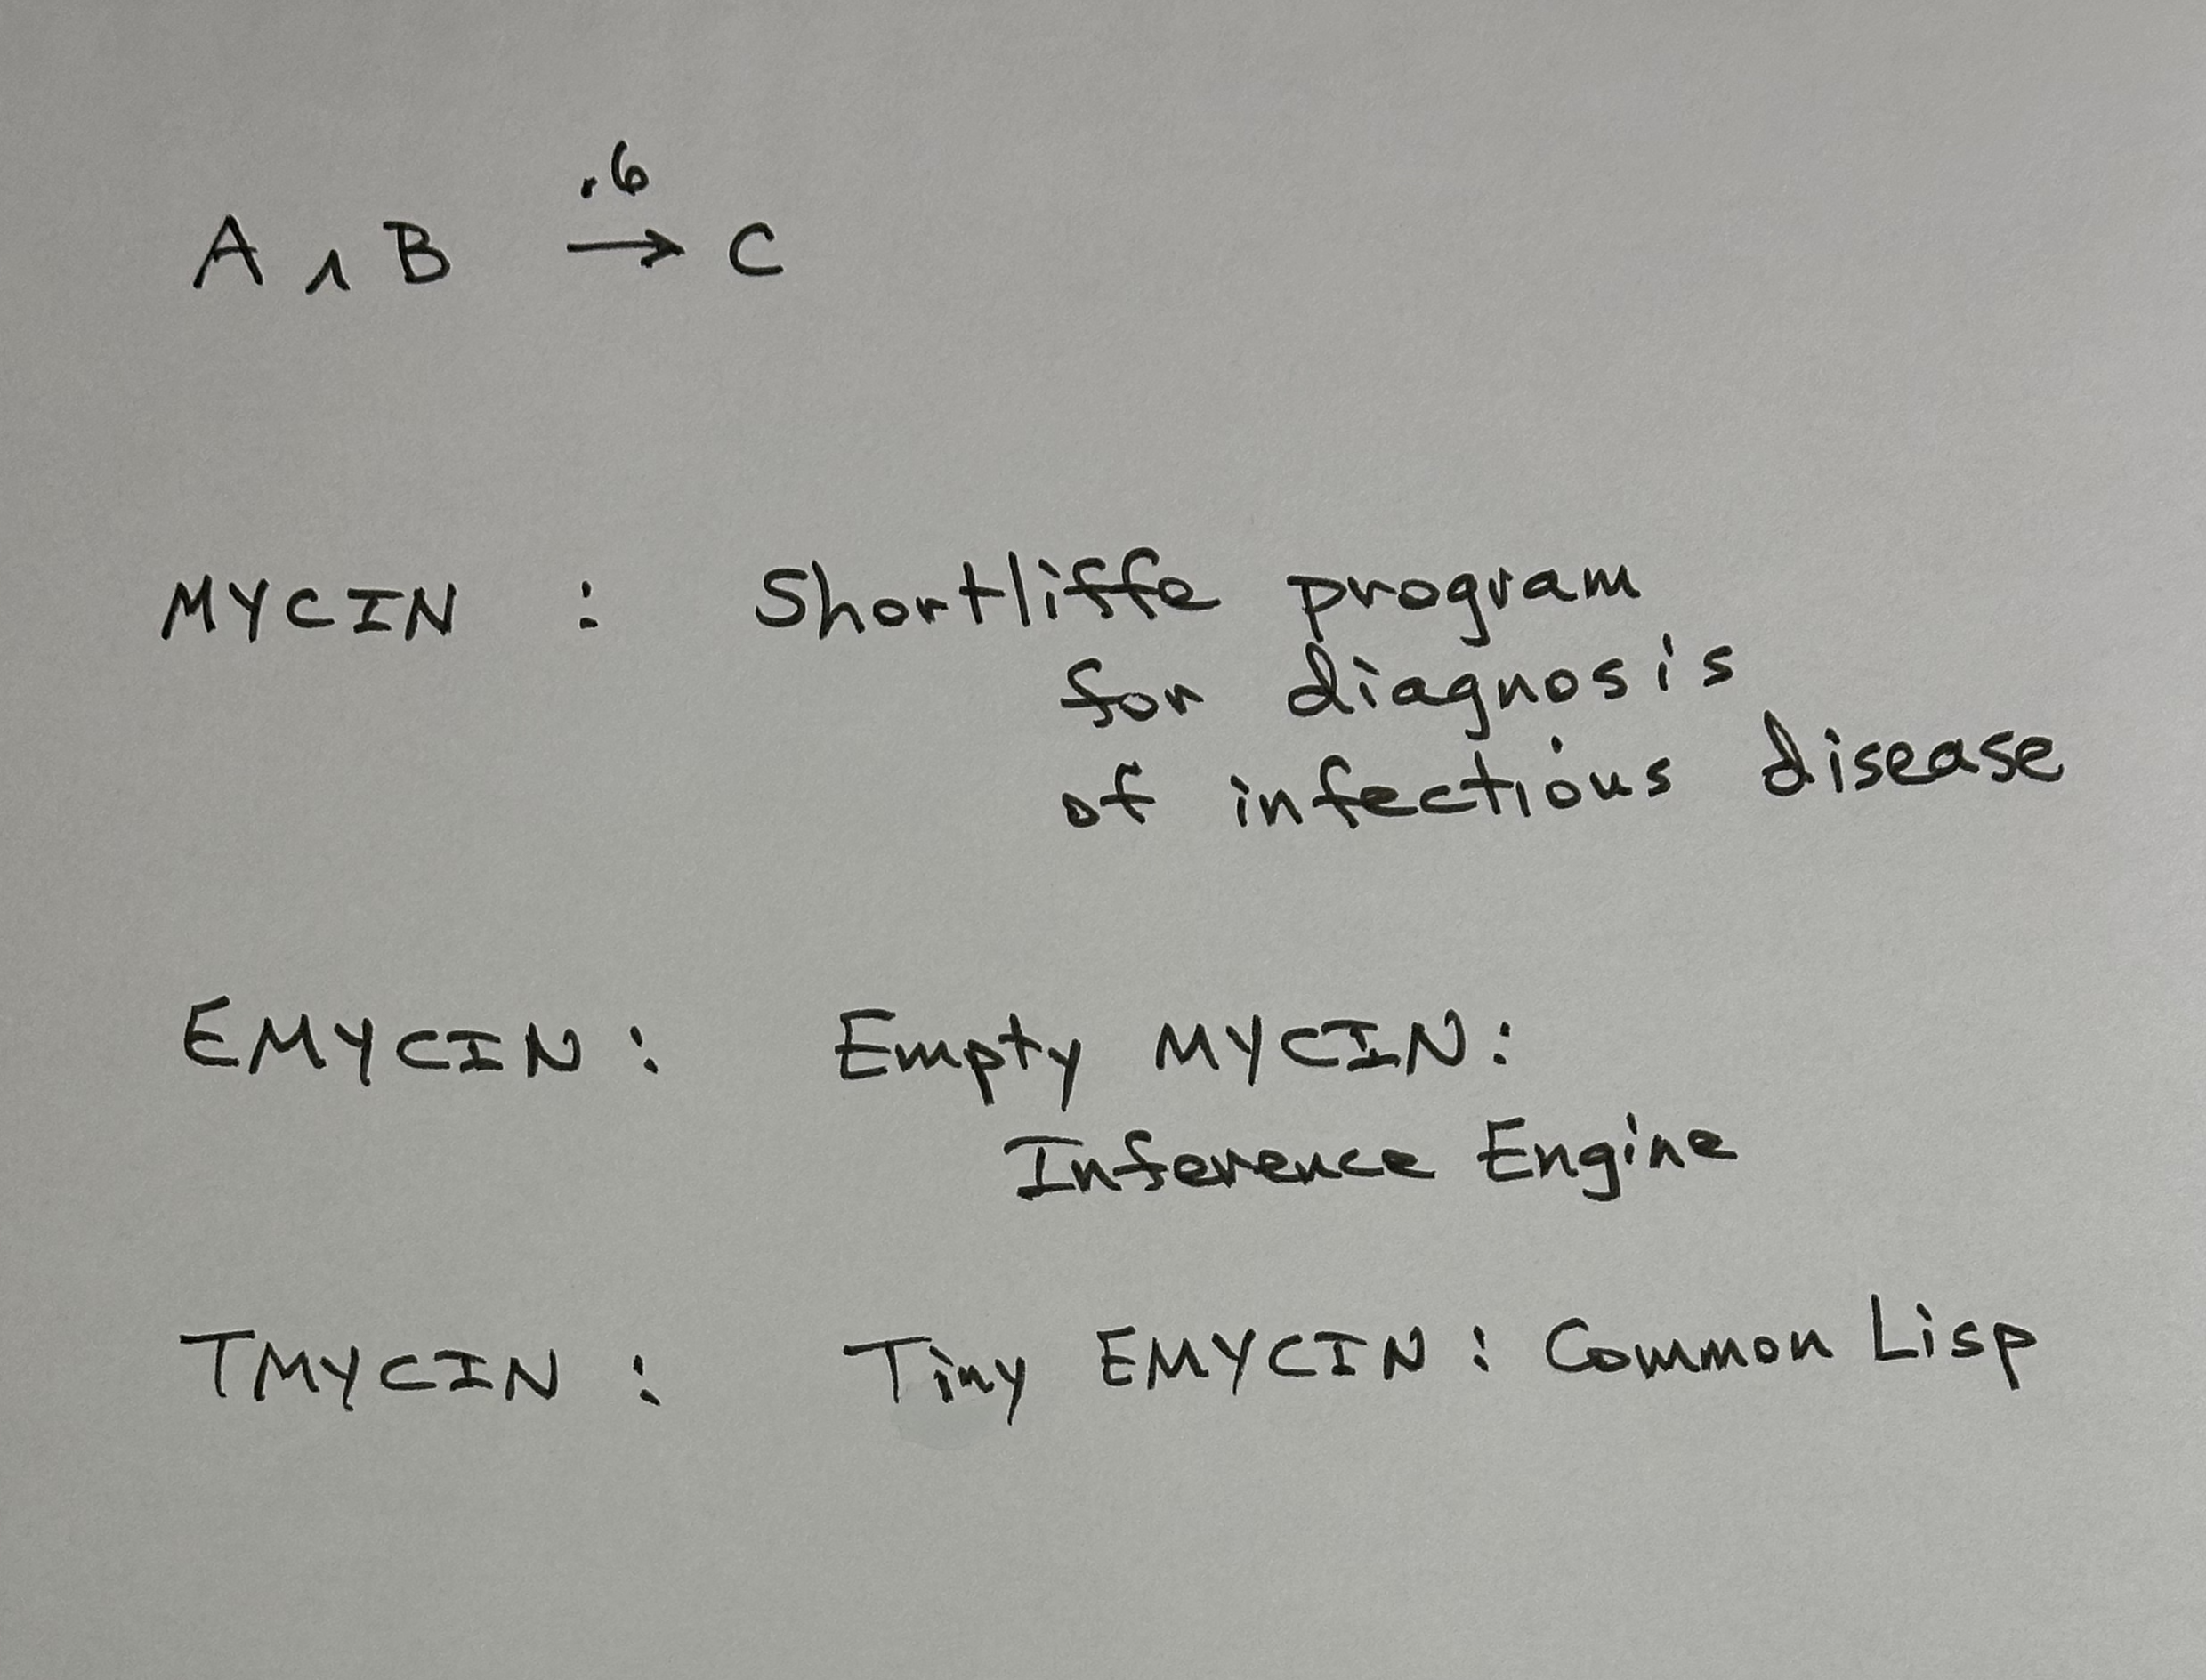 .6
A ∧ B → C
MYCIN : Shortliffe program
for diagnosis
of infectious disease
EMYCIN : Empty MYCIN:
Inference Engine
TMYCIN : Tiny EMYCIN : Common Lisp